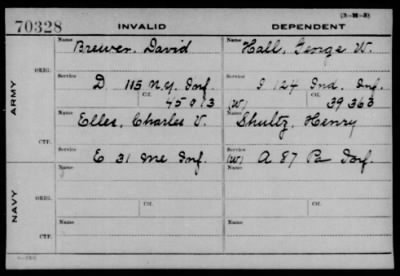 70328 INVALID DEPENDENT (3-M-3)
ARMY
ORIG.
Name Brewer, David Name Hall, George W.
Service D 115 N.Y. Inf. Service I 124 Ind. Inf.
Ctf. 45013 (W) Ctf. 39363
CTF.
Name Elles, Charles V. Name Shultz, Henry
Service E 31 Me Inf. Service (W) A 87 Pa Inf.
NAVY
ORIG.
Name Name
Service Ctf. Service Ctf.
CTF.
Name Name
Service Service